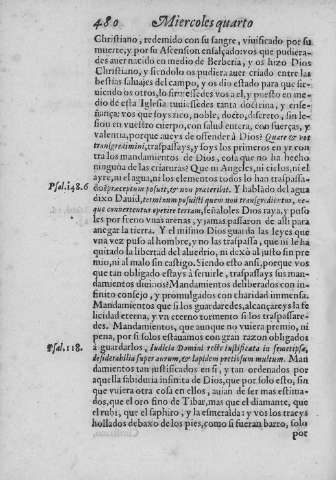 480 Miercoles quarto
Christiano, redemido con su sangre, viuificado por su
muerte, y por su Ascension ensalçado: vos que pudiera-
des auer nacido en medio de Berberia, y os hizo Dios
Christiano, y siendolo os pudiera auer criado entre las
bestias saluajes del campo, y os dio estado para que sir-
uiendo os otros, lo siruiessedes vos a el, y puesto en me-
dio de esta Iglesia tuuiessedes tanta doctrina, y ense-
ñança: vos que soys rico, noble, docto, discreto, sin le-
sion en vuestro cuerpo, con salud entera, con fuerças, y
valentia, porque aueys de ofender à Dios? Quare & vos
transgredimini, traspassays, y soys los primeros en yr con
tra los mandamientos de Dios, cosa que no ha hecho
ninguna de las criaturas? Que ni Angeles, ni cielos, ni el
ayre, ni el agua, ni los elementos todos lo han traspassa-
Psal. 148. 6 do: præceptum posuit, & non præteribit. Y hablado del agua
dixo Dauid, terminum posuisti quem non transgredientur, ne-
que conuertentur operire terram, señaloles Dios raya, y puso
les por freno vnas arenas, y jamas passaron de alli para
anegar la tierra. Y el mismo Dios guarda las leyes que
vna vez puso al hombre, y no las traspassa, que ni le ha
quitado la libertad del aluedrio, ni dexò al justo sin pre
mio, ni al malo sin castigo. Siendo esto ansi, porque vos
que tan obligado estays à seruirle, traspassays sus man-
damientos diuinos? Mandamientos deliberados con in-
finito consejo, y promulgados con charidad inmensa.
Mandamientos que si los guardaredes, alcançareys la fe
licidad eterna, y vn eterno tormento si los traspassare-
des. Mandamientos, que aunque no vuiera premio, ni
pena, por si solos estauamos con gran razon obligados
Psal. 118. à guardarlos, Iudicia Domini recta iustificata in semetipsa,
desiderabilia super aurum, & lapidem pretiosum multum. Man
damientos tan justificados en si, y tan ordenados por
aquella sabiduria infinita de Dios, que por solo esto, sin
que vuiera otra cosa en ellos, auian de ser mas estima-
dos, que el oro fino de Tibar, mas que el diamante, que
el rubi, que el saphiro, y la esmeralda: y vos los traeys
hollados debaxo de los pies, como si fueran barro, solo
por